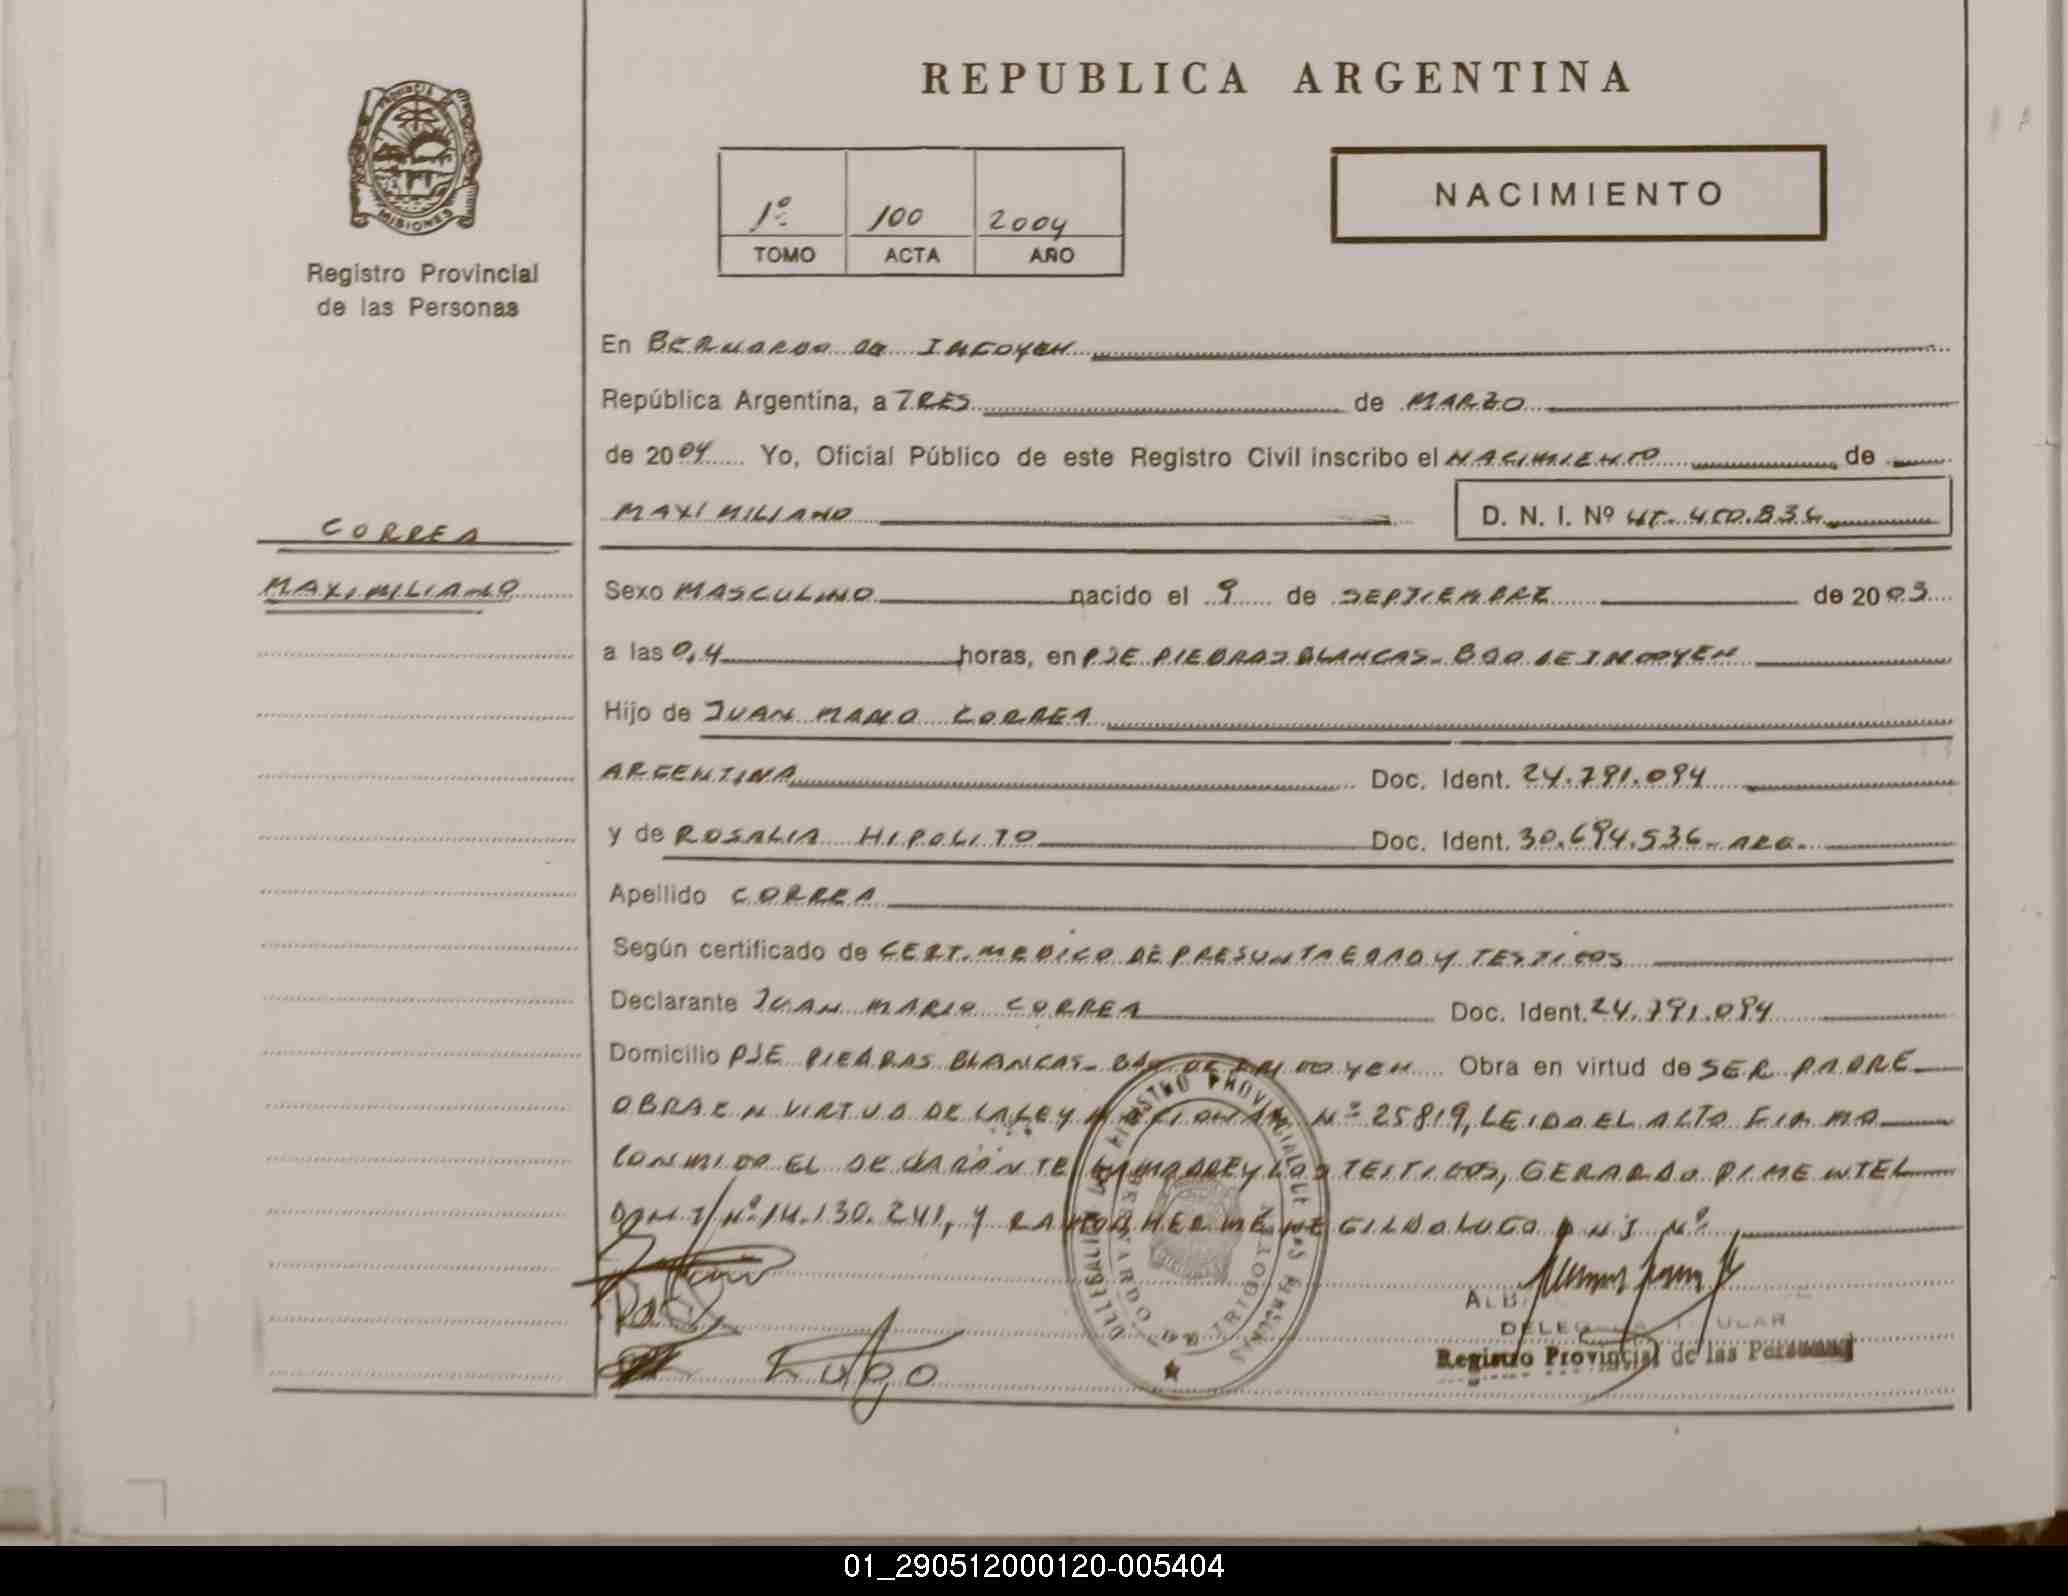 REPUBLICA ARGENTINA
MISIONES
Registro Provincial
de las Personas
1º 100 2004
TOMO ACTA AÑO
NACIMIENTO
En BERNARDO DE IRIGOYEN
República Argentina, a TRES de MARZO
de 2004 Yo, Oficial Público de este Registro Civil inscribo el NACIMIENTO de
MAXIMILIANO D. N. I. Nº 45.450.836
CORREA
MAXIMILIANO
Sexo MASCULINO nacido el 9 de SEPTIEMBRE de 2003
a las 0,4 horas, en PJE PIEDRAS BLANCAS- BDO DE IRIGOYEN
Hijo de JUAN MARIO CORREA
ARGENTINA Doc. Ident. 24.791.094
y de ROSALIA HIPOLITO Doc. Ident. 30.694.536- ARG.
Apellido CORREA
Según certificado de CERT. MEDICO DE PRESUNTA EDAD Y TESTIGOS
Declarante JUAN MARIO CORREA Doc. Ident. 24.791.094
Domicilio PJE PIEDRAS BLANCAS- BDO DE IRIGOYEN Obra en virtud de SER PADRE
OBRA EN VIRTUD DE LA LEY NACIONAL Nº 25819, LEIDA EL ACTA FIRMA
CONMIGO EL DECLARANTE LA MADRE Y LOS TESTIGOS, GERARDO PIMENTEL
D N I Nº 14.130.241, Y RAMON HERMENEGILDO LUGO D N I Nº
LUGO
REGISTRO PROVINCIAL DE LAS PERSONAS
BERNARDO DE IRIGOYEN
ALB
DELEGADA TITULAR
Registro Provincial de las Personas
01_290512000120-005404